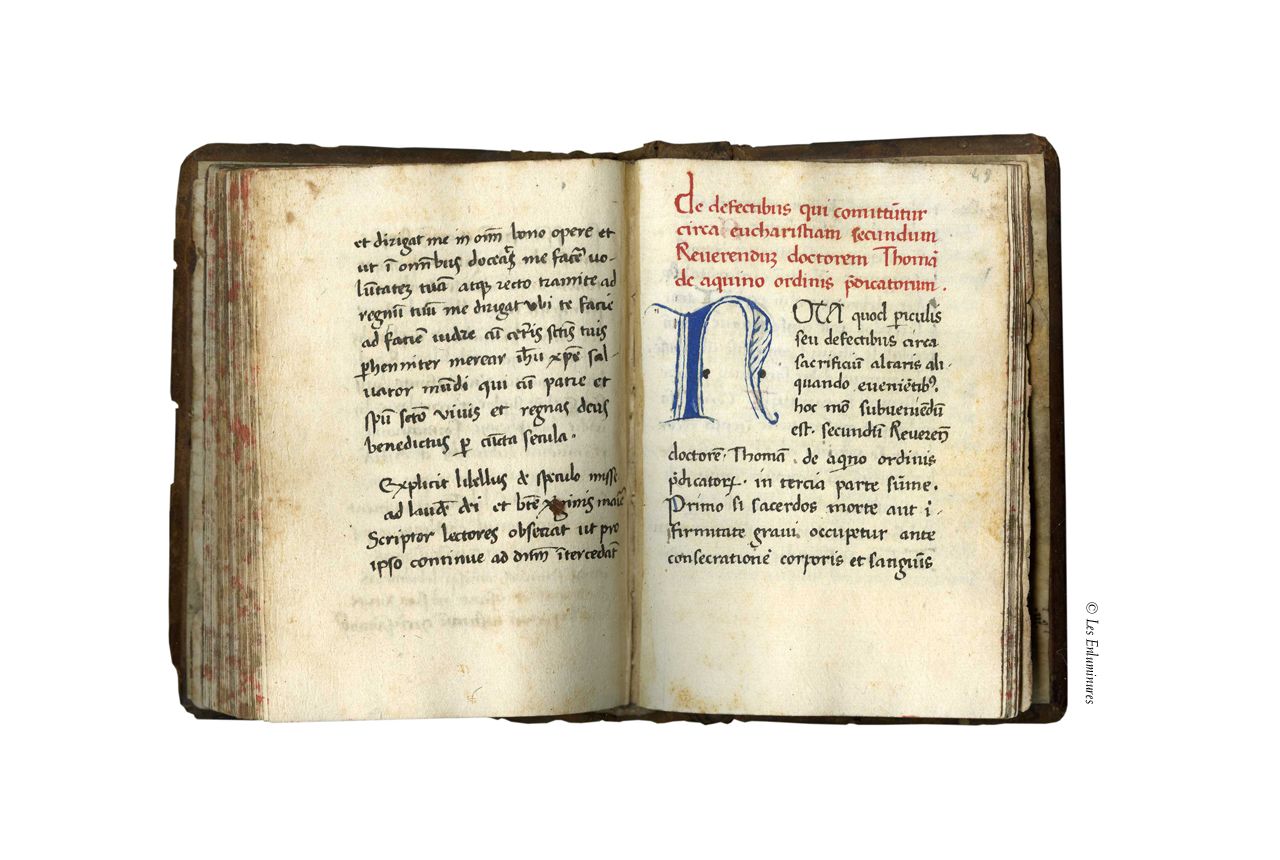 et dirigat me in om̅i bono opere et
ut i̅ om̅ibus doceas me face̅ uo-
lu̅tate̅ tua̅ atqꝫ recto tramite ad
regnu̅ tuu̅ me dirigat Vbi te facie
ad facie̅ uidre cu̅ cet̅is sc̅tis tuis
ꝑhenniter merear ih̅u xp̅e sal-
uator mu̅di qui cu̅ patre et
spu̅ sc̅to viuis et regnas deus
benedictus ꝑ cu̅cta secula.
Explicit libellus de speculo misse
ad laude̅ dei et bt̅e virginis marie
Scriptor lectores obsecrat ut pro
ipso continue ad dn̅m i̅tercedat̅
49
De defectibus qui comittu̅tur
circa eucharistiam secundum
Reuerenduꝫ doctorem Thoma̅
de aquino ordinis p̅dicatorum.
NOTA quod ꝑiculis
seu defectibus circa
sacrificiu̅ altaris ali-
quando euenie̅tibꝰ.
hoc mo̅ subuenie̅du̅
est. secundu̅ Reueren̅
doctore̅. Thoma̅. de aq̅no ordinis
p̅dicatoꝝ. in tercia parte su̅me.
Primo si sacerdos morte aut i̅-
firmitate graui occupetur ante
consecratione̅ corporis et sangui̅s
© Les Enluminures